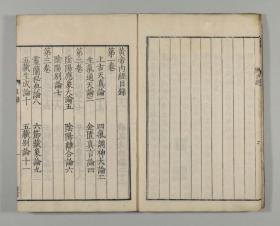 黃帝內經目錄
第一卷
上古天真論一　四氣調神大論二
生氣通天論三　金匱真言論四
第二卷
陰陽應象大論五　陰陽離合論六
陰陽別論七
第三卷
靈蘭秘典論八　六節藏象論九
五藏生成論十　五藏別論十一